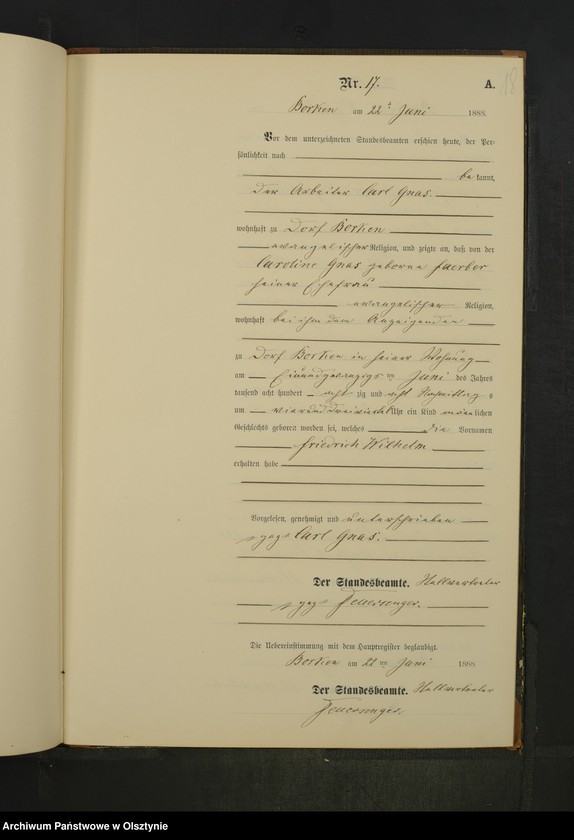 Nr. 17. A. 18
Borken am 22t Juni 1888.
Vor dem unterzeichneten Standesbeamten erschien heute, der Per-
sönlichkeit nach
bekannt,
der Arbeiter Carl Gnas.
wohnhaft zu Dorf Borken
evangelischer Religion, und zeigte an, daß von der
Caroline Gnas geborene Faerber
seiner Ehefrau
evangelischer Religion,
wohnhaft bei ihm dem Anzeigenden
zu Dorf Borken in seiner Wohnung
am Einundzwanzigsten Juni des Jahres
tausend acht hundert achtzig und acht Nachmittags
um vier und dreiviertel Uhr ein Kind männlichen
Geschlechts geboren worden sei, welches die Vornamen
Friedrich Wilhelm
erhalten habe
Vorgelesen, genehmigt und unterschrieben
gez. Carl Gnas.
Der Standesbeamte. Stellvertreter
gez.
Die Uebereinstimmung mit dem Hauptregister beglaubigt.
Borken am 22ten Juni 1888
Der Standesbeamte. Stellvertreter
Archiwum Państwowe w Olsztynie